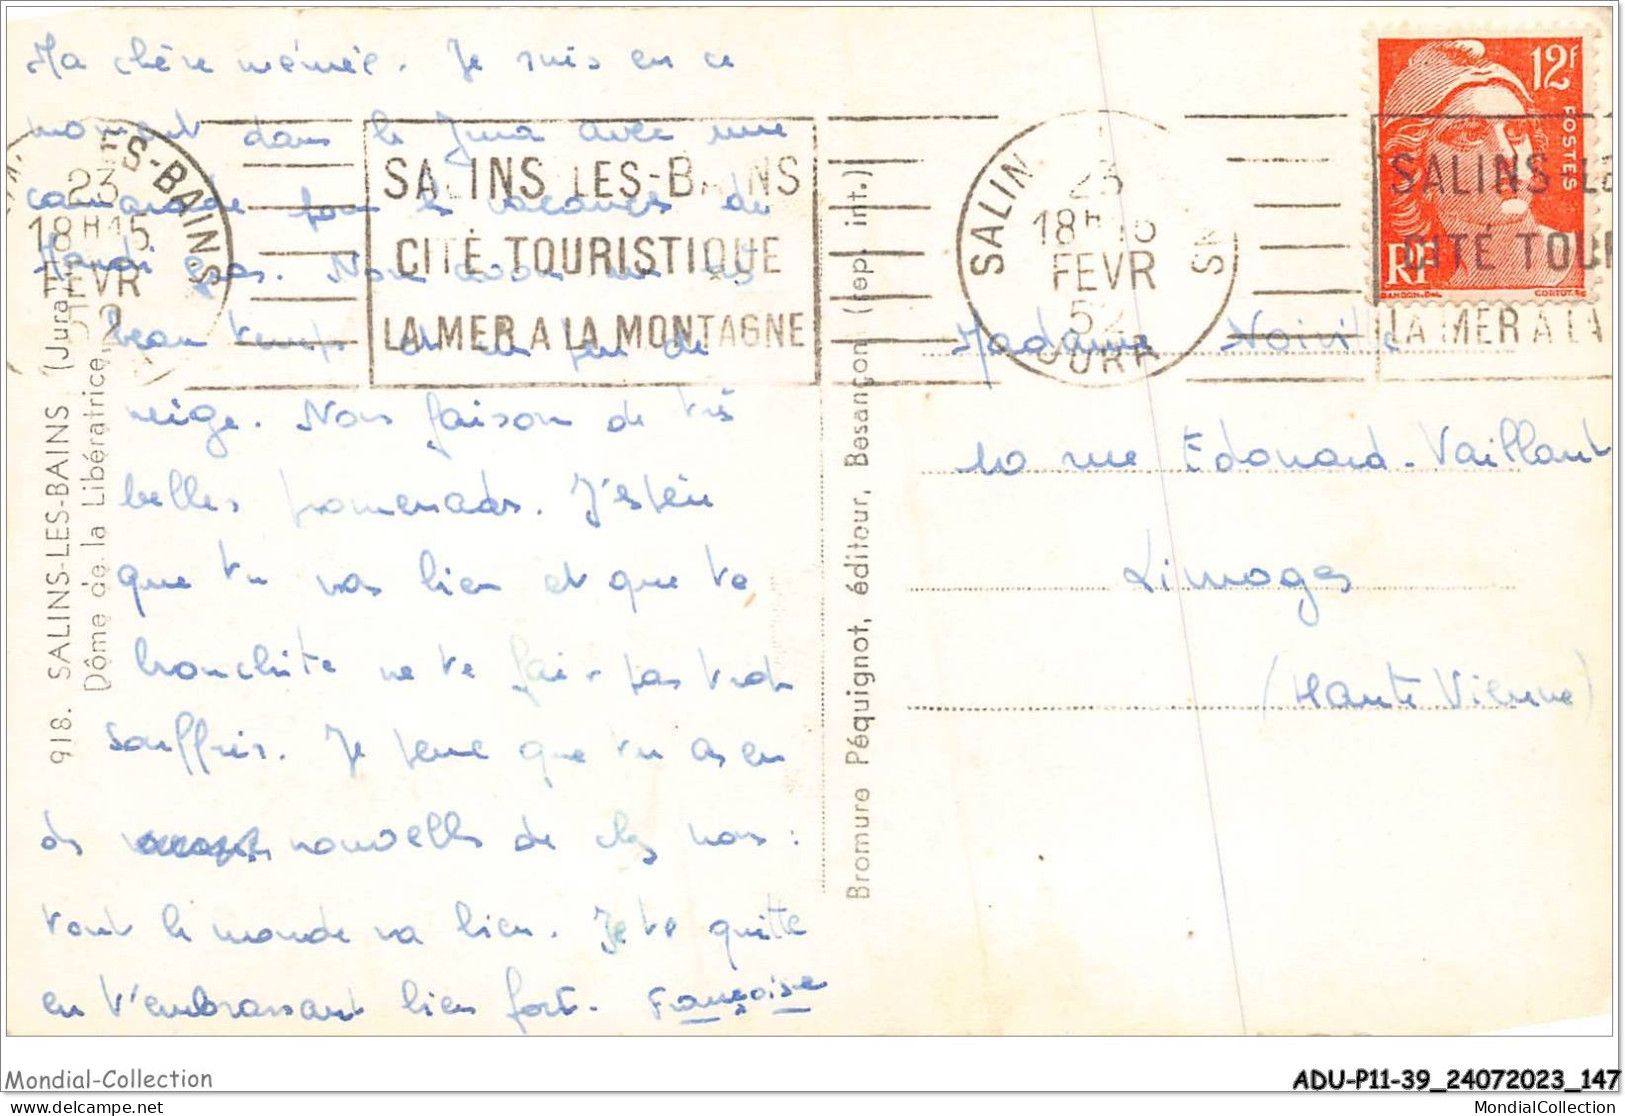 Ma chère mémée. Je suis en ce
moment dans le Jura avec une
camarade pour les vacances de
Mardi gras. Nous avons un très
beau temps et un peu de
neige. Nous faison de très
belles promenades. J'espère
que tu vas bien et que ta
bronchite ne te fait pas trop
souffrir. Je pense que tu as eu
ds nouvelles de chez nous :
tout le monde va bien. Je te quitte
en t'embrassant bien fort. Françoise
918. SALINS-LES-BAINS (Jura)
Dôme de la Libératrice
ES-BAINS
23
18H15
FEVR
2
SALINS LES-BAINS
CITÉ TOURISTIQUE
LA MER A LA MONTAGNE
Bromure Péquignot, éditeur, Besançon (rep. int.)
SALIN NS
23
18H15
FEVR
52
JURA
12F
POSTES
RF
GANDON.DEL
CORTOT.SC
SALINS LE
CITÉ TOUR
LA MER A LA
Madame Noiville
10 rue Edouard-Vaillant
Limoges
(Haute Vienne)
Mondial-Collection
delcampe.net
ADU-P11-39_24072023_147
MondialCollection